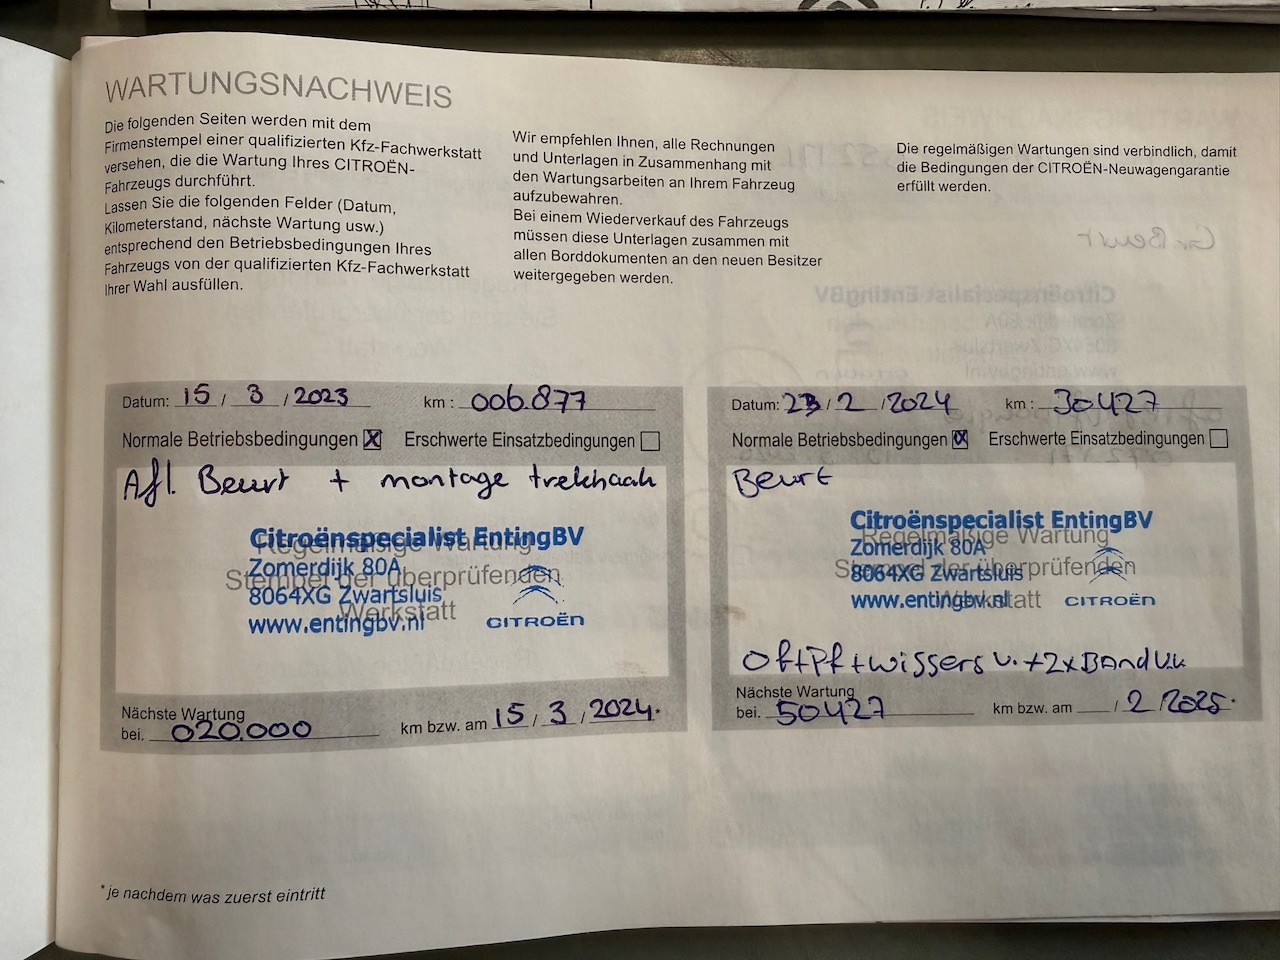 WARTUNGSNACHWEIS
Die folgenden Seiten werden mit dem
Firmenstempel einer qualifizierten Kfz-Fachwerkstatt
versehen, die die Wartung Ihres CITROËN-
Fahrzeugs durchführt.
Lassen Sie die folgenden Felder (Datum,
Kilometerstand, nächste Wartung usw.)
entsprechend den Betriebsbedingungen Ihres
Fahrzeugs von der qualifizierten Kfz-Fachwerkstatt
Ihrer Wahl ausfüllen.
Wir empfehlen Ihnen, alle Rechnungen
und Unterlagen in Zusammenhang mit
den Wartungsarbeiten an Ihrem Fahrzeug
aufzubewahren.
Bei einem Wiederverkauf des Fahrzeugs
müssen diese Unterlagen zusammen mit
allen Borddokumenten an den neuen Besitzer
weitergegeben werden.
Die regelmäßigen Wartungen sind verbindlich, damit
die Bedingungen der CITROËN-Neuwagengarantie
erfüllt werden.
Datum: 15 / 3 / 2023 km : 006.877
Normale Betriebsbedingungen Erschwerte Einsatzbedingungen
Afl. Beurt + montage trekhaak
Citroënspecialist EntingBV
Regelmäßige Wartung
Zomerdijk 80A
Stempel der überprüfenden
8064XG Zwartsluis
Werkstatt
www.entingbv.nl CITROËN
Nächste Wartung
bei. 020.000 km bzw. am 15 / 3 / 2024.
Datum: 23 / 2 / 2024 km : 30427
Normale Betriebsbedingungen Erschwerte Einsatzbedingungen
Beurt
Citroënspecialist EntingBV
Regelmäßige Wartung
Zomerdijk 80A
Stempel der überprüfenden
8064XG Zwartsluis
Werkstatt
www.entingbv.nl CITROËN
Of+Pf+wissers v.+2xBand
Nächste Wartung
bei. 50427 km bzw. am / 2 / 2025.
*je nachdem was zuerst eintritt